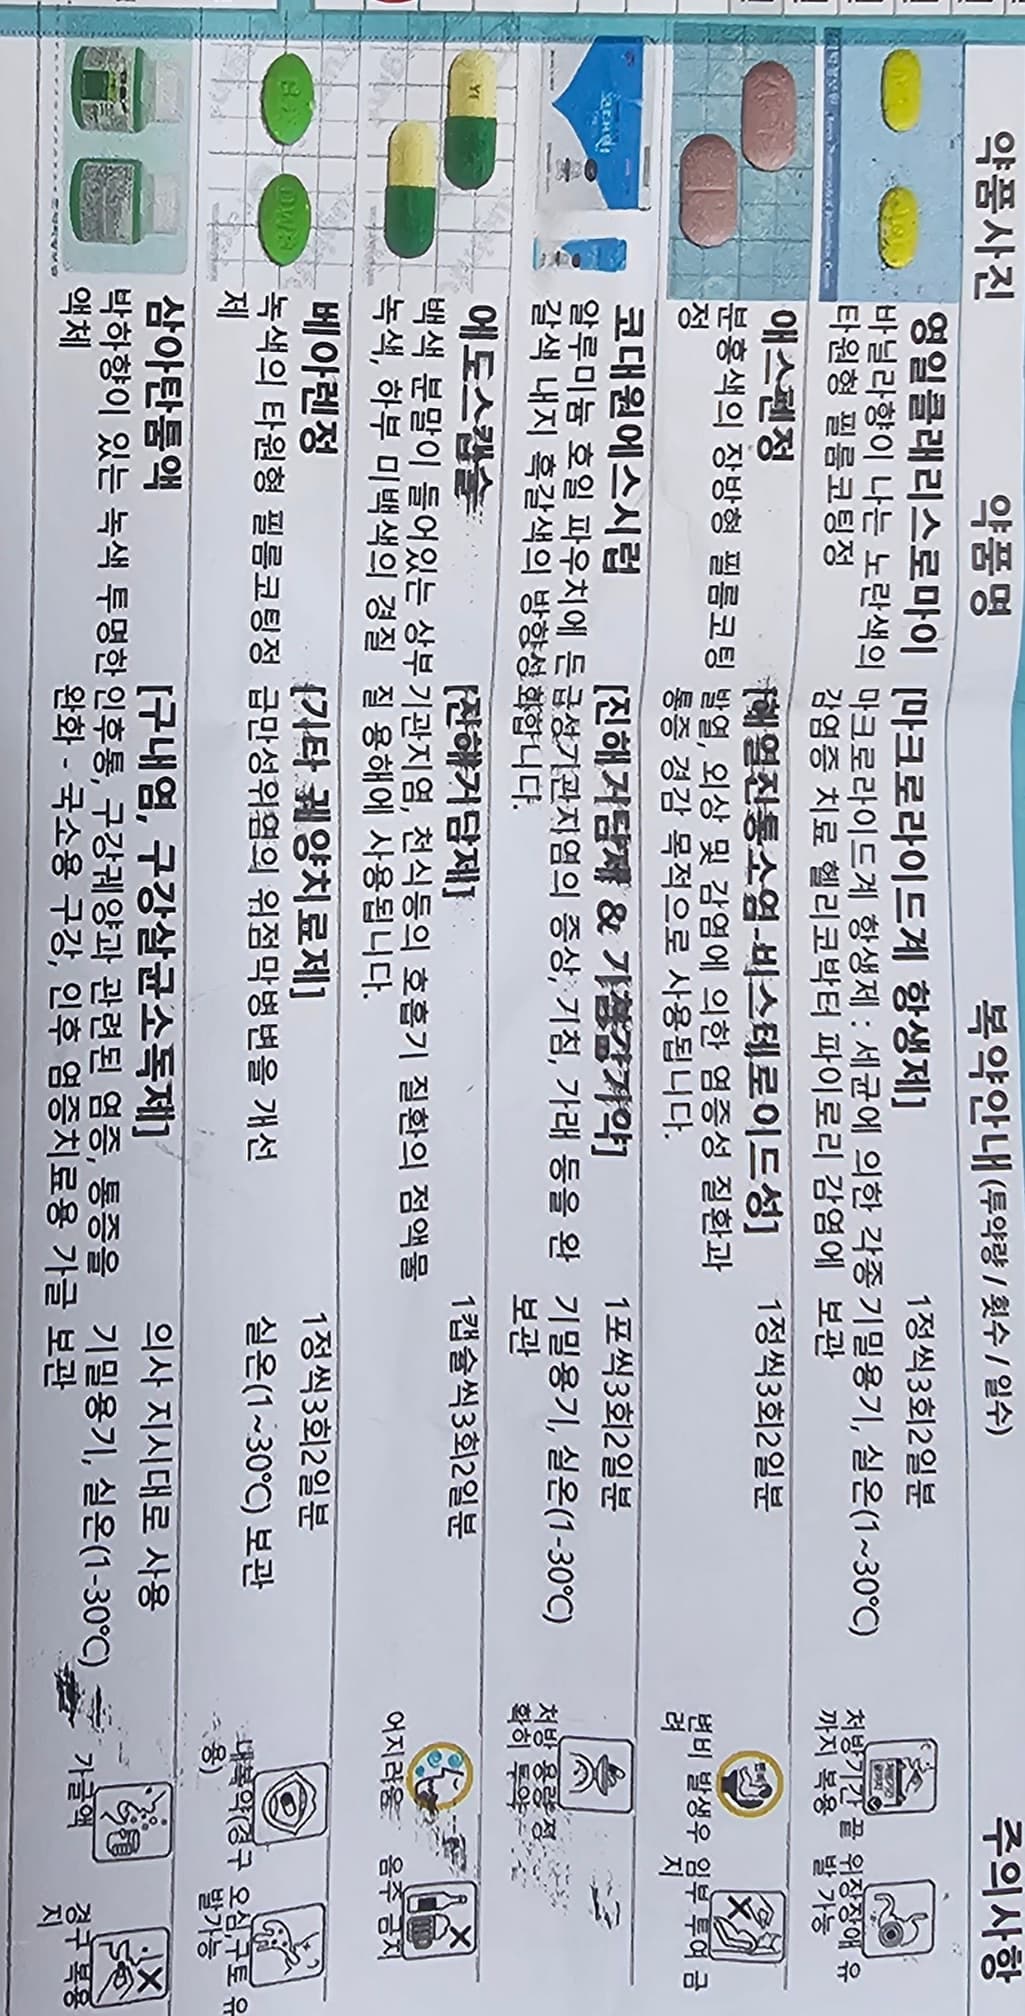 약품사진
약품명
복약안내(투약량 / 횟수 / 일수)
주의사항
영일클래리스로마이
바닐라향이 나는 노란색의
타원형 필름코팅정
[마크로라이드계 항생제]
마크로라이드계 항생제 : 세균에 의한 각종
감염증 치료 헬리코박터 파이로리 감염에
1정씩3회2일분
기밀용기, 실온(1~30℃)
보관
처방기간 끝
까지 복용
위장장애 유
발 가능
애스펜정
분홍색의 장방형 필름코팅
정
[해열진통소염-비스테로이드성]
발열, 외상 및 감염에 의한 염증성 질환과
통증 경감 목적으로 사용됩니다.
1정씩3회2일분
변비 발생우
려
임부 투여 금
지
코대원에스시럽
알루미늄 호일 파우치에 든
갈색 내지 흑갈색의 방향성
[진해거담제 & 기침감기약]
급성기관지염의 증상, 기침, 가래 등을 완
화합니다.
1포씩3회2일분
기밀용기, 실온(1-30℃)
보관
처방 용량 정
확히 투약
에도스캡슐
백색 분말이 들어있는 상부
녹색, 하부 미백색의 경질
[진해거담제]
기관지염, 천식등의 호흡기 질환의 점액물
질 용해에 사용됩니다.
1캡슐씩3회2일분
어지러움
음주 금지
베아렌정
녹색의 타원형 필름코팅정
제
[기타 궤양치료제]
급만성위염의 위점막병변을 개선
1정씩3회2일분
실온(1~30℃) 보관
내복약(경구
용)
오심,구토 유
발가능
삼아탄툼액
박하향이 있는 녹색 투명한
액체
[구내염, 구강살균소독제]
인후통, 구강궤양과 관련된 염증, 통증을
완화 - 국소용 구강, 인후 염증치료용 가글
의사 지시대로 사용
기밀용기, 실온(1-30℃)
보관
가글액
경구 복용
지